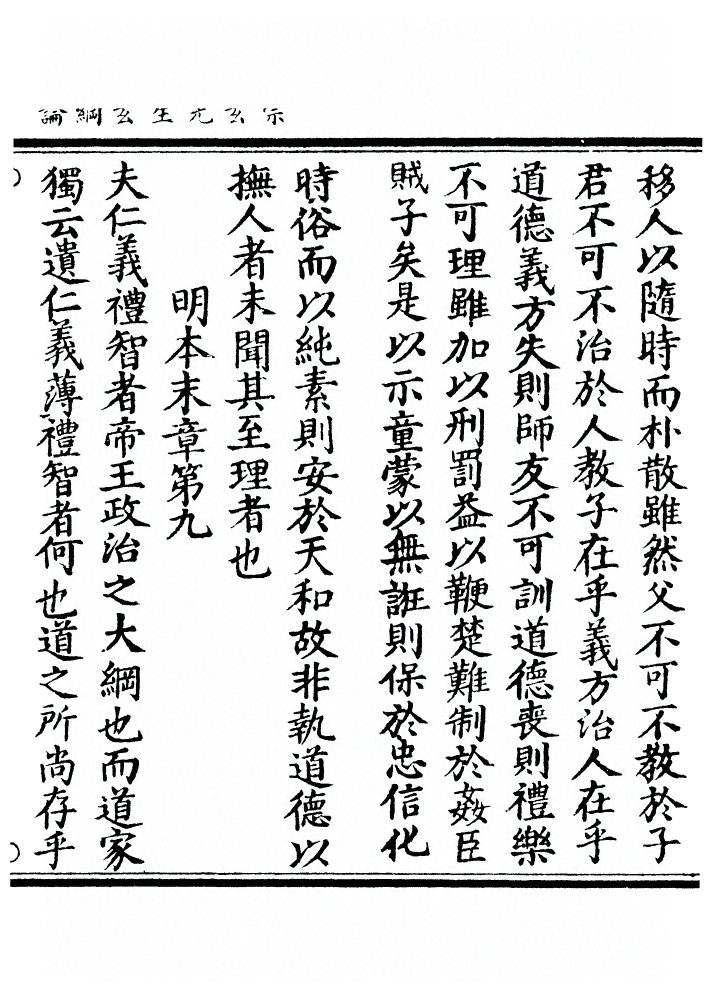 宗玄先生玄綱論
移人以隨時而朴散雖然父不可不教於子
君不可不治於人教子在乎義方治人在乎
道德義方失則師友不可訓道德喪則禮樂
不可理雖加以刑罰益以鞭楚難制於姦臣
賊子矣是以示童蒙以無誑則保於忠信化
時俗而以純素則安於天和故非執道德以
撫人者未聞其至理者也
明本末章第九
夫仁義禮智者帝王政治之大綱也而道家
獨云遺仁義薄禮智者何也道之所尚存乎